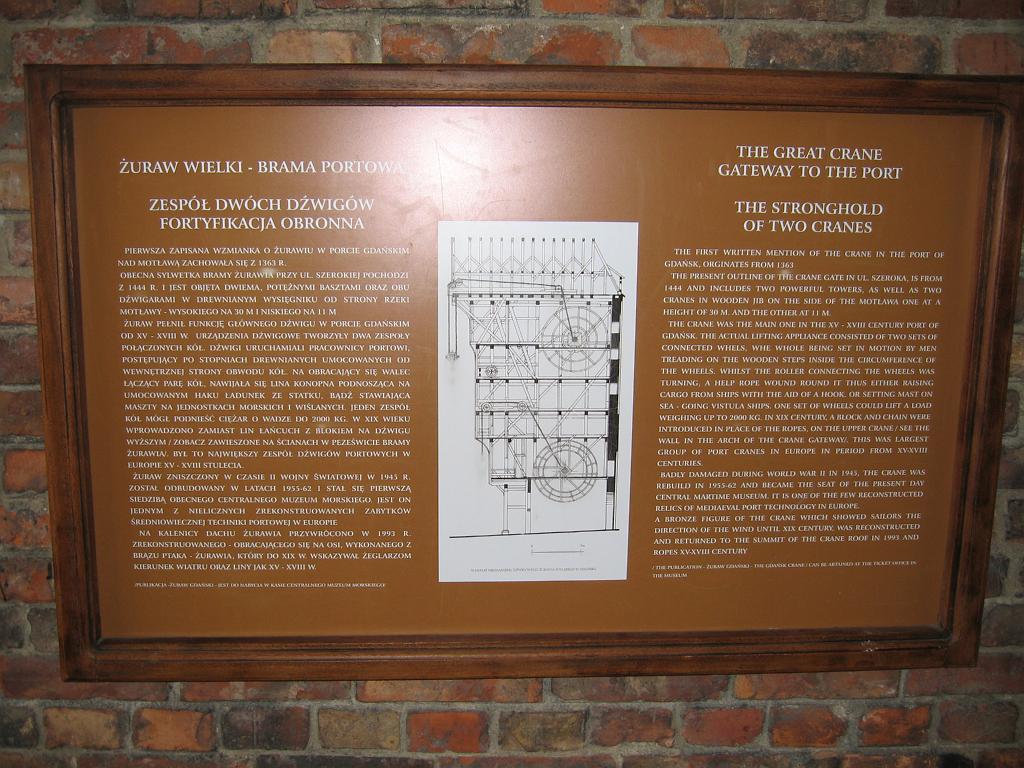 ŻURAW WIELKI - BRAMA PORTOWA
ZESPÓŁ DWÓCH DŹWIGÓW
FORTYFIKACJA OBRONNA
PIERWSZA ZAPISANA WZMIANKA O ŻURAWIU W PORCIE GDAŃSKIM
NAD MOTŁAWĄ ZACHOWAŁA SIĘ Z 1363 R.
OBECNA SYLWETKA BRAMY ŻURAWIA PRZY UL. SZEROKIEJ POCHODZI
Z 1444 R. I JEST OBJĘTA DWIEMA, POTĘŻNYMI BASZTAMI ORAZ OBU
DŹWIGARAMI W DREWNIANYM WYSIĘGNIKU OD STRONY RZEKI
MOTŁAWY - WYSOKIEGO NA 30 M I NISKIEGO NA 11 M
ŻURAW PEŁNIŁ FUNKCJĘ GŁÓWNEGO DŹWIGU W PORCIE GDAŃSKIM
OD XV - XVIII W. URZĄDZENIA DŹWIGOWE TWORZYŁY DWA ZESPOŁY
POŁĄCZONYCH KÓŁ. DŹWIGI URUCHAMIALI PRACOWNICY PORTOWI,
POSTĘPUJĄCY PO STOPNIACH DREWNIANYCH UMOCOWANYCH OD
WEWNĘTRZNEJ STRONY OBWODU KÓŁ. NA OBRACAJĄCY SIĘ WALEC
ŁĄCZĄCY PARĘ KÓŁ, NAWIJAŁA SIĘ LINA KONOPNA PODNOSZĄCA NA
UMOCOWANYM HAKU ŁADUNEK ZE STATKU, BĄDŹ STAWIAJĄCA
MASZTY NA JEDNOSTKACH MORSKICH I WIŚLANYCH. JEDEN ZESPÓŁ
KÓŁ MÓGŁ PODNIEŚĆ CIĘŻAR O WADZE DO 2000 KG. W XIX WIEKU
WPROWADZONO ZAMIAST LIN ŁAŃCUCH Z BLOKIEM NA DŹWIGU
WYŻSZYM / ZOBACZ ZAWIESZONE NA ŚCIANACH W PEZEŚWICIE BRAMY
ŻURAWIA/. BYŁ TO NAJWIĘKSZY ZESPÓŁ DŹWIGÓW PORTOWYCH W
EUROPIE XV - XVIII STULECIA.
ŻURAW ZNISZCZONY W CZASIE II WOJNY ŚWIATOWEJ W 1945 R.
ZOSTAŁ ODBUDOWANY W LATACH 1955-62 I STAŁ SIĘ PIERWSZĄ
SIEDZIBĄ OBECNEGO CENTRALNEGO MUZEUM MORSKIEGO. JEST ON
JEDNYM Z NIELICZNYCH ZREKONSTRUOWANYCH ZABYTKÓW
ŚREDNIOWIECZNEJ TECHNIKI PORTOWEJ W EUROPIE
NA KALENICY DACHU ŻURAWIA PRZYWRÓCONO W 1993 R.
ZREKONSTRUOWANEGO - OBRACAJĄCEGO SIĘ NA OSI, WYKONANEGO Z
BRĄZU PTAKA - ŻURAWIA, KTÓRY DO XIX W. WSKAZYWAŁ ŻEGLARZOM
KIERUNEK WIATRU ORAZ LINY JAK XV - XVIII W.
/PUBLIKACJA -ŻURAW GDAŃSKI - JEST DO NABYCIA W KASIE CENTRALNEGO MUZEUM MORSKIEGO/
THE GREAT CRANE
GATEWAY TO THE PORT
THE STRONGHOLD
OF TWO CRANES
THE FIRST WRITTEN MENTION OF THE CRANE IN THE PORT OF
GDAŃSK, ORGINATES FROM 1363
THE PRESENT OUTLINE OF THE CRANE GATE IN UL. SZEROKA, IS FROM
1444 AND INCLUDES TWO POWERFUL TOWERS, AS WELL AS TWO
CRANES IN WOODEN JIB ON THE SIDE OF THE MOTŁAWA ONE AT A
HEIGHT OF 30 M. AND THE OTHER AT 11 M.
THE CRANE WAS THE MAIN ONE IN THE XV - XVIII CENTURY PORT OF
GDAŃSK. THE ACTUAL LIFTING APPLIANCE CONSISTED OF TWO SETS OF
CONNECTED WHELS, WHE WHOLE BEING SET IN MOTION BY MEN
TREADING ON THE WOODEN STEPS INSIDE THE CIRCUMFERENCE OF
THE WHEELS. WHILST THE ROLLER CONNECTING THE WHEELS WAS
TURNING, A HELP ROPE WOUND ROUND IT THUS EITHER RAISING
CARGO FROM SHIPS WITH THE AID OF A HOOK, OR SETTING MAST ON
SEA - GOING VISTULA SHIPS. ONE SET OF WHEELS COULD LIFT A LOAD
WEIGHING UP TO 2000 KG. IN XIX CENTURY, A BLOCK AND CHAIN WERE
INTRODUCED IN PLACE OF THE ROPES, ON THE UPPER CRANE / SEE THE
WALL IN THE ARCH OF THE CRANE GATEWAY/. THIS WAS LARGEST
GROUP OF PORT CRANES IN EUROPE IN PERIOD FROM XV-XVIII
CENTURIES.
BADLY DAMAGED DURING WORLD WAR II IN 1945, THE CRANE WAS
REBUILD IN 1955-62 AND BECAME THE SEAT OF THE PRESENT DAY
CENTRAL MARTIME MUSEUM. IT IS ONE OF THE FEW RECONSTRUCTED
RELICS OF MEDIAEVAL PORT TECHNOLOGY IN EUROPE.
A BRONZE FIGURE OF THE CRANE WHICH SHOWED SAILORS THE
DIRECTION OF THE WIND UNTIL XIX CENTURY, WAS RECONSTRUCTED
AND RETURNED TO THE SUMMIT OF THE CRANE ROOF IN 1993 AND
ROPES XV-XVIII CENTURY
/ THE PUBLICATION - ŻURAW GDAŃSKI - THE GDAŃSK CRANE / CAN BE OBTAINED AT THE TICKET OFFICE IN
THE MUSEUM